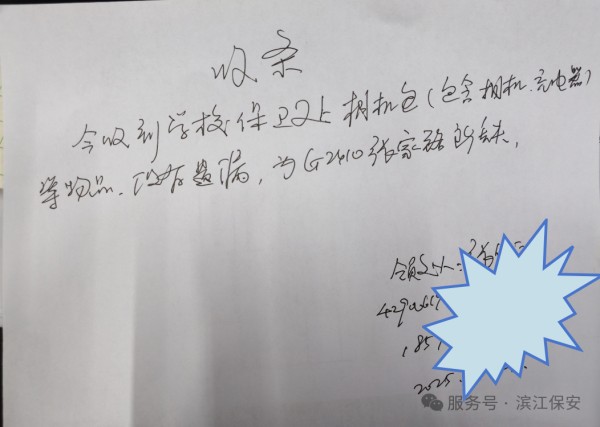 收条
今收到学校保卫处相机包(包含相机.充电器)
等物品.没有遗漏,为G2410张家骆所失,
领取人:张
429006
185
2025.
服务号·滨江保安